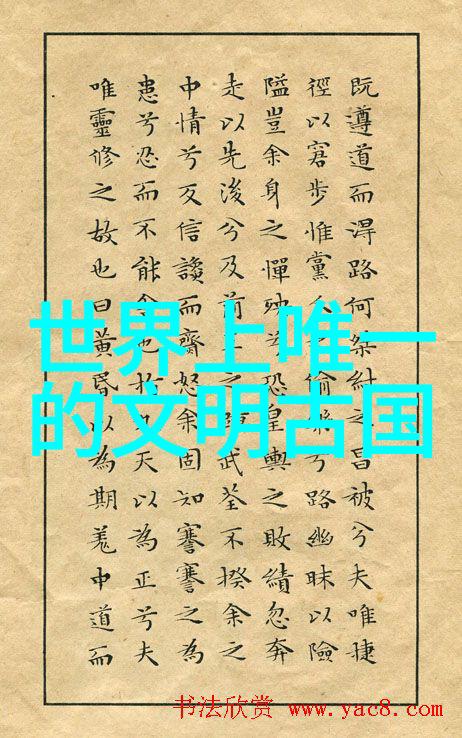 既遵道而得路何桀紂之昌被兮夫唯捷
徑以窘步惟黨人偷樂兮路幽昧以險
隘豈余身之憚殃兮恐皇輿之敗績忽奔
走以先後兮及前之武荃不揆余之
中情兮反信讒而齌怒余固知謇謇之為
患兮忍而不能舍也指天以為正兮夫
唯靈修之故也曰黃昏以為期羌中道而
世界上唯一
的文明古国
书法欣赏 www.yac8.com